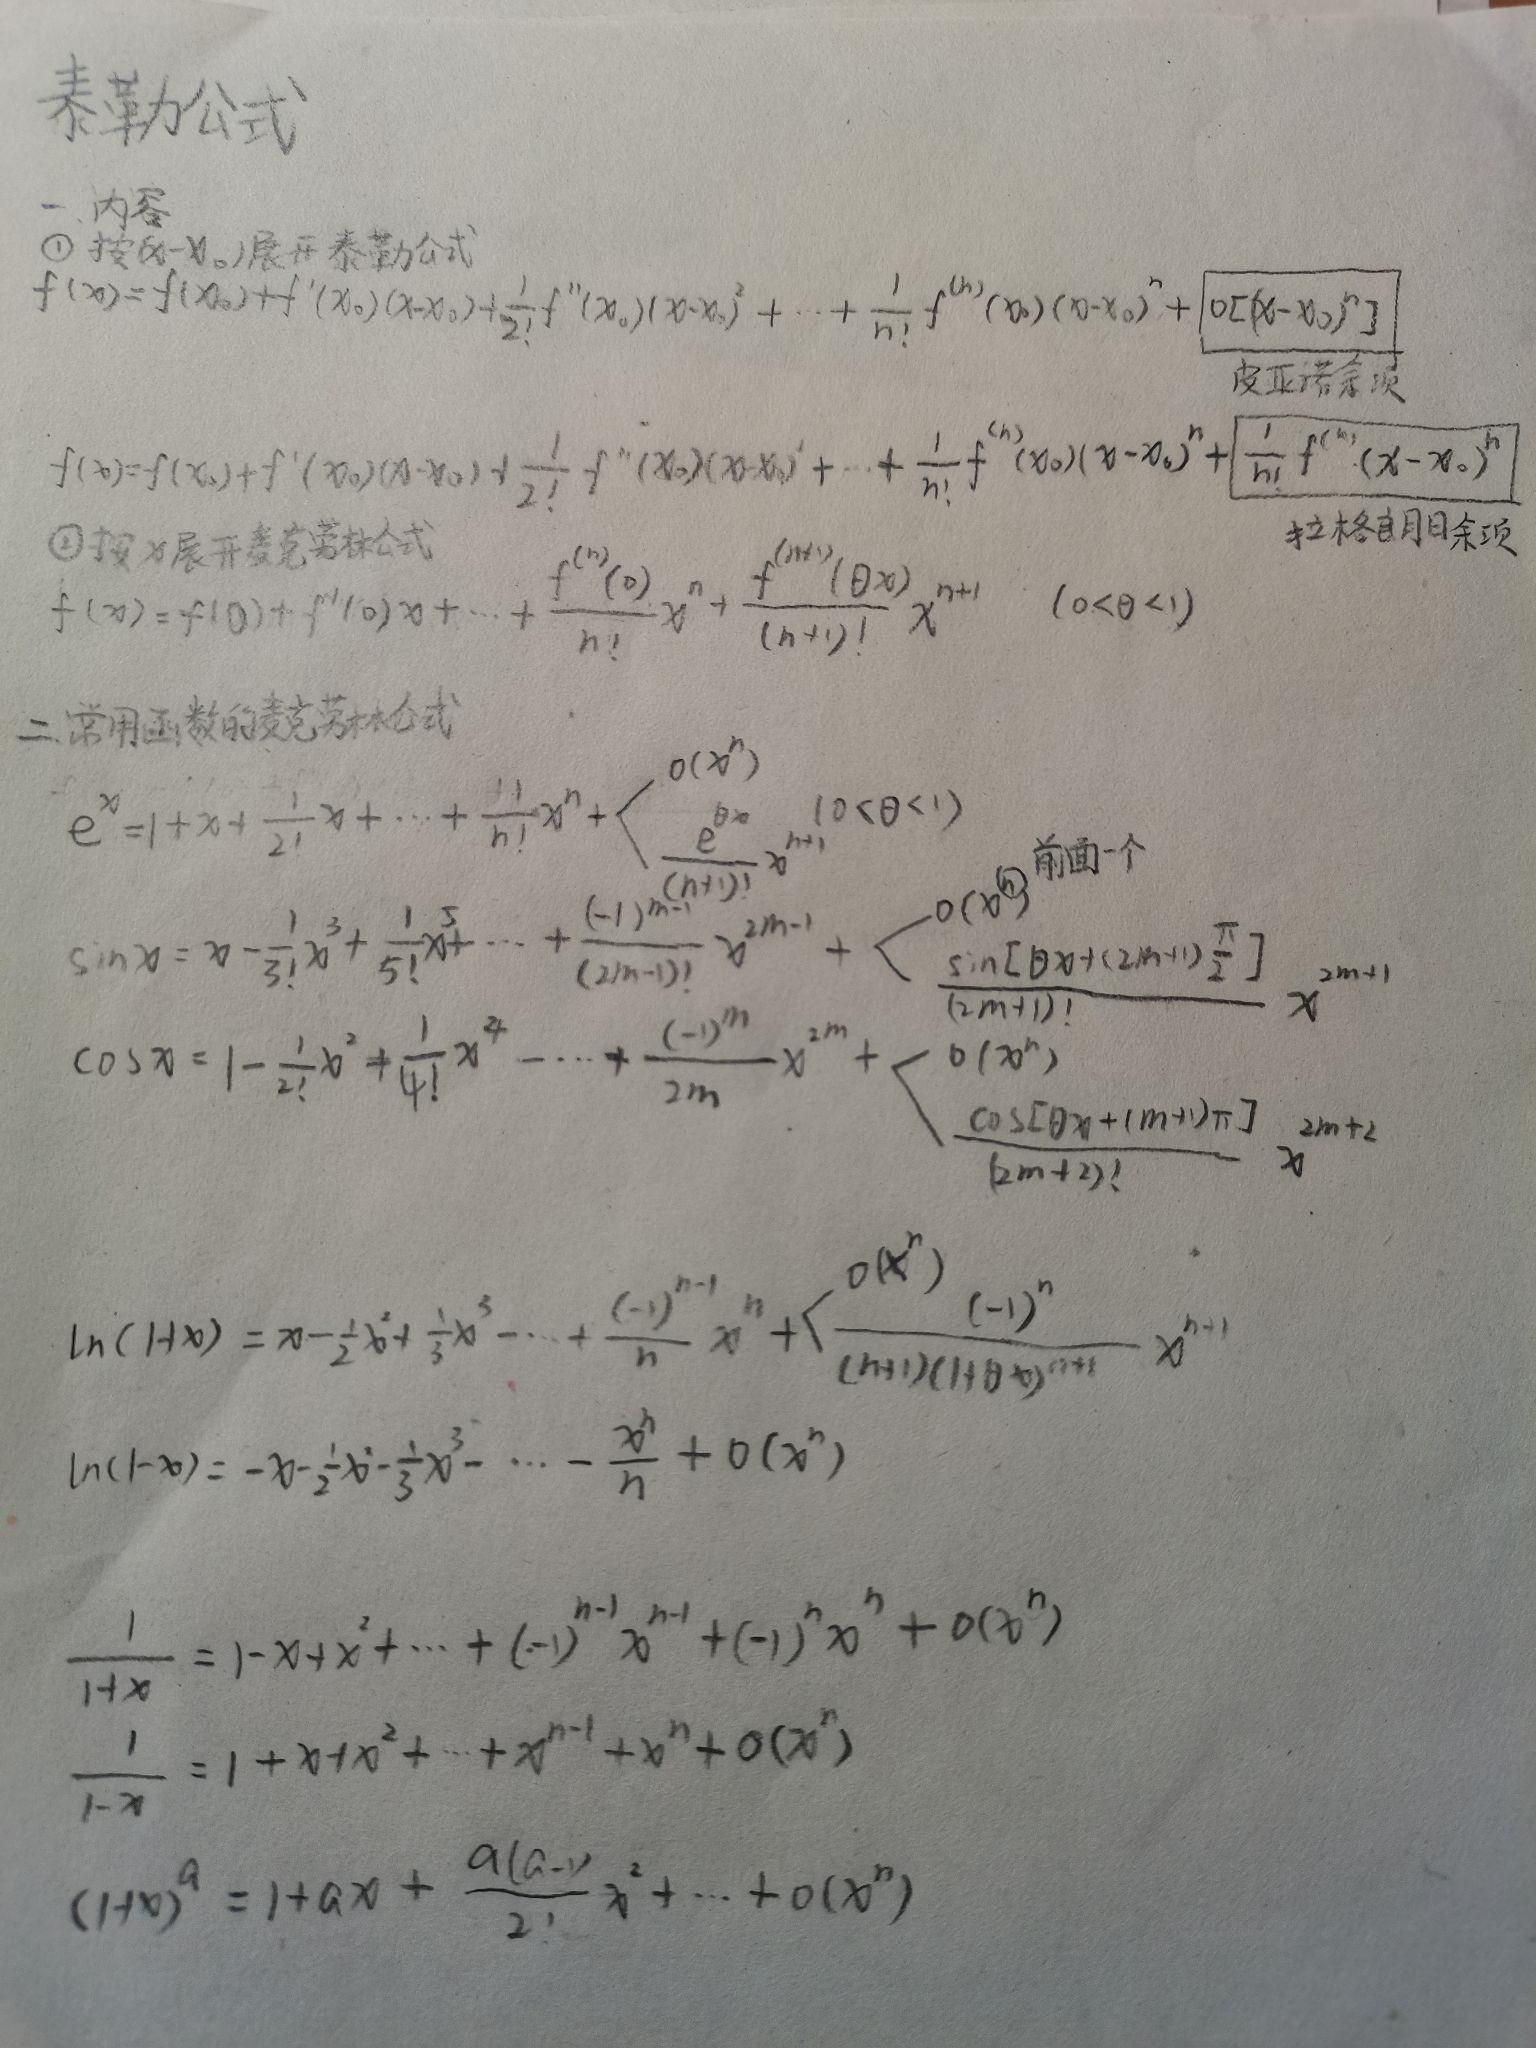 泰勒公式
一.内容
① 按(x-x₀)展开泰勒公式
f(x)=f(x₀)+f'(x₀)(x-x₀)+\frac{1}{2!}f''(x₀)(x-x₀)²+…+\frac{1}{n!}f^{(n)}(x₀)(x-x₀)^n+o[(x-x₀)^n]
皮亚诺余项
f(x)=f(x₀)+f'(x₀)(x-x₀)+\frac{1}{2!}f''(x₀)(x-x₀)²+…+\frac{1}{n!}f^{(n)}(x₀)(x-x₀)^n+\frac{1}{n!}f^{(n)}(x-x₀)^n
拉格朗日余项
②按x展开麦克劳林公式
f(x)=f(0)+f'(0)x+…+\frac{f^{(n)}(0)}{n!}x^n+\frac{f^{(n+1)}(θx)}{(n+1)!}x^{n+1} (0<θ<1)
二.常用函数的麦克劳林公式
e^x=1+x+\frac{1}{2!}x+…+\frac{1}{n!}x^n+
o(x^n)
\frac{e^{θx}}{(n+1)!}x^{n+1} (0<θ<1)
sinx=x-\frac{1}{3!}x³+\frac{1}{5!}x⁵+…+\frac{(-1)^{m-1}}{(2m-1)!}x^{2m-1}+
o(x^n) 前面一个
\frac{sin[θx+(2m+1)\frac{π}{2}]}{(2m+1)!}x^{2m+1}
cosx=1-\frac{1}{2!}x²+\frac{1}{4!}x⁴-…+\frac{(-1)^m}{2m}x^{2m}+
o(x^n)
\frac{cos[θx+(m+1)π]}{(2m+2)!}x^{2m+2}
ln(1+x)=x-\frac{1}{2}x²+\frac{1}{3}x³-…+\frac{(-1)^{n-1}}{n}x^n+
o(x^n)
\frac{(-1)^n}{(n+1)(1+θx)^{n+1}}x^{n+1}
ln(1-x)=-x-\frac{1}{2}x²-\frac{1}{3}x³-…-\frac{x^n}{n}+o(x^n)
\frac{1}{1+x}=1-x+x²+…+(-1)^{n-1}x^{n-1}+(-1)^n x^n+o(x^n)
\frac{1}{1-x}=1+x+x²+…+x^{n-1}+x^n+o(x^n)
(1+x)^a=1+ax+\frac{a(a-1)}{2!}x²+…+o(x^n)